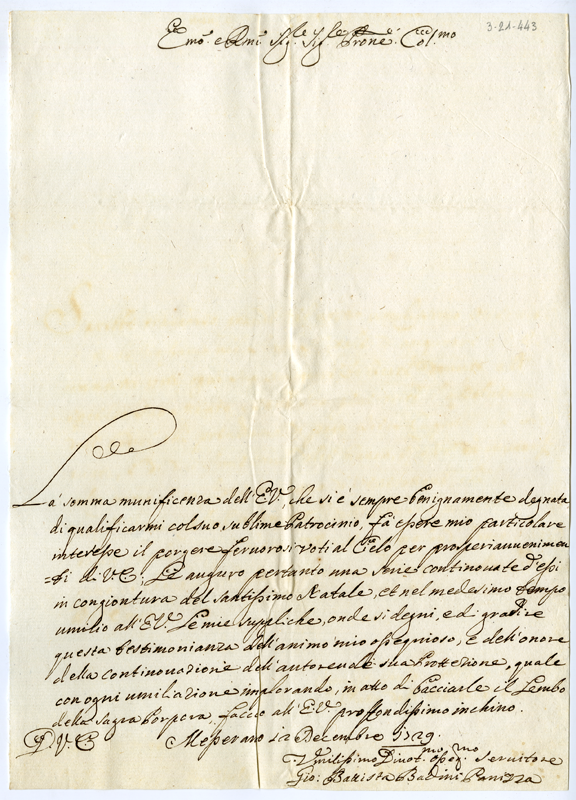 3-21-443
Emo. e Rmo. Sigr. Sigr. Prone. Colmo.
La somma munificenza dell'E.V., che si è sempre benignamente degnata
di qualificarmi col suo sublime Patrocinio, fà essere mio particolare
interesse il porgere fervorosi voti al Cielo per prosperi auuenimen
=ti di V.E; Le auguro pertanto una serie continouata d'essi
in congiontura del Santissimo Natale, et nel medesimo tempo
umilio all'E.V. le mie suppliche, onde si degni, e di gradire
questa testimonianza dell'animo mio ossequioso, e dell'onore
della continouazione dell'autoreuole sua Prottezione, quale
con ogni umiliazione implorando, in atto di bacciarle il Lembo
della Sagra Porpora, faccio all'E.V. proffondissimo inchino.
D. V. E. Mesperano 12 Decembre 1729.
Vmilissimo Diuotmo. osseqmo. Seruitore
Gio: Battista Badini Panizza